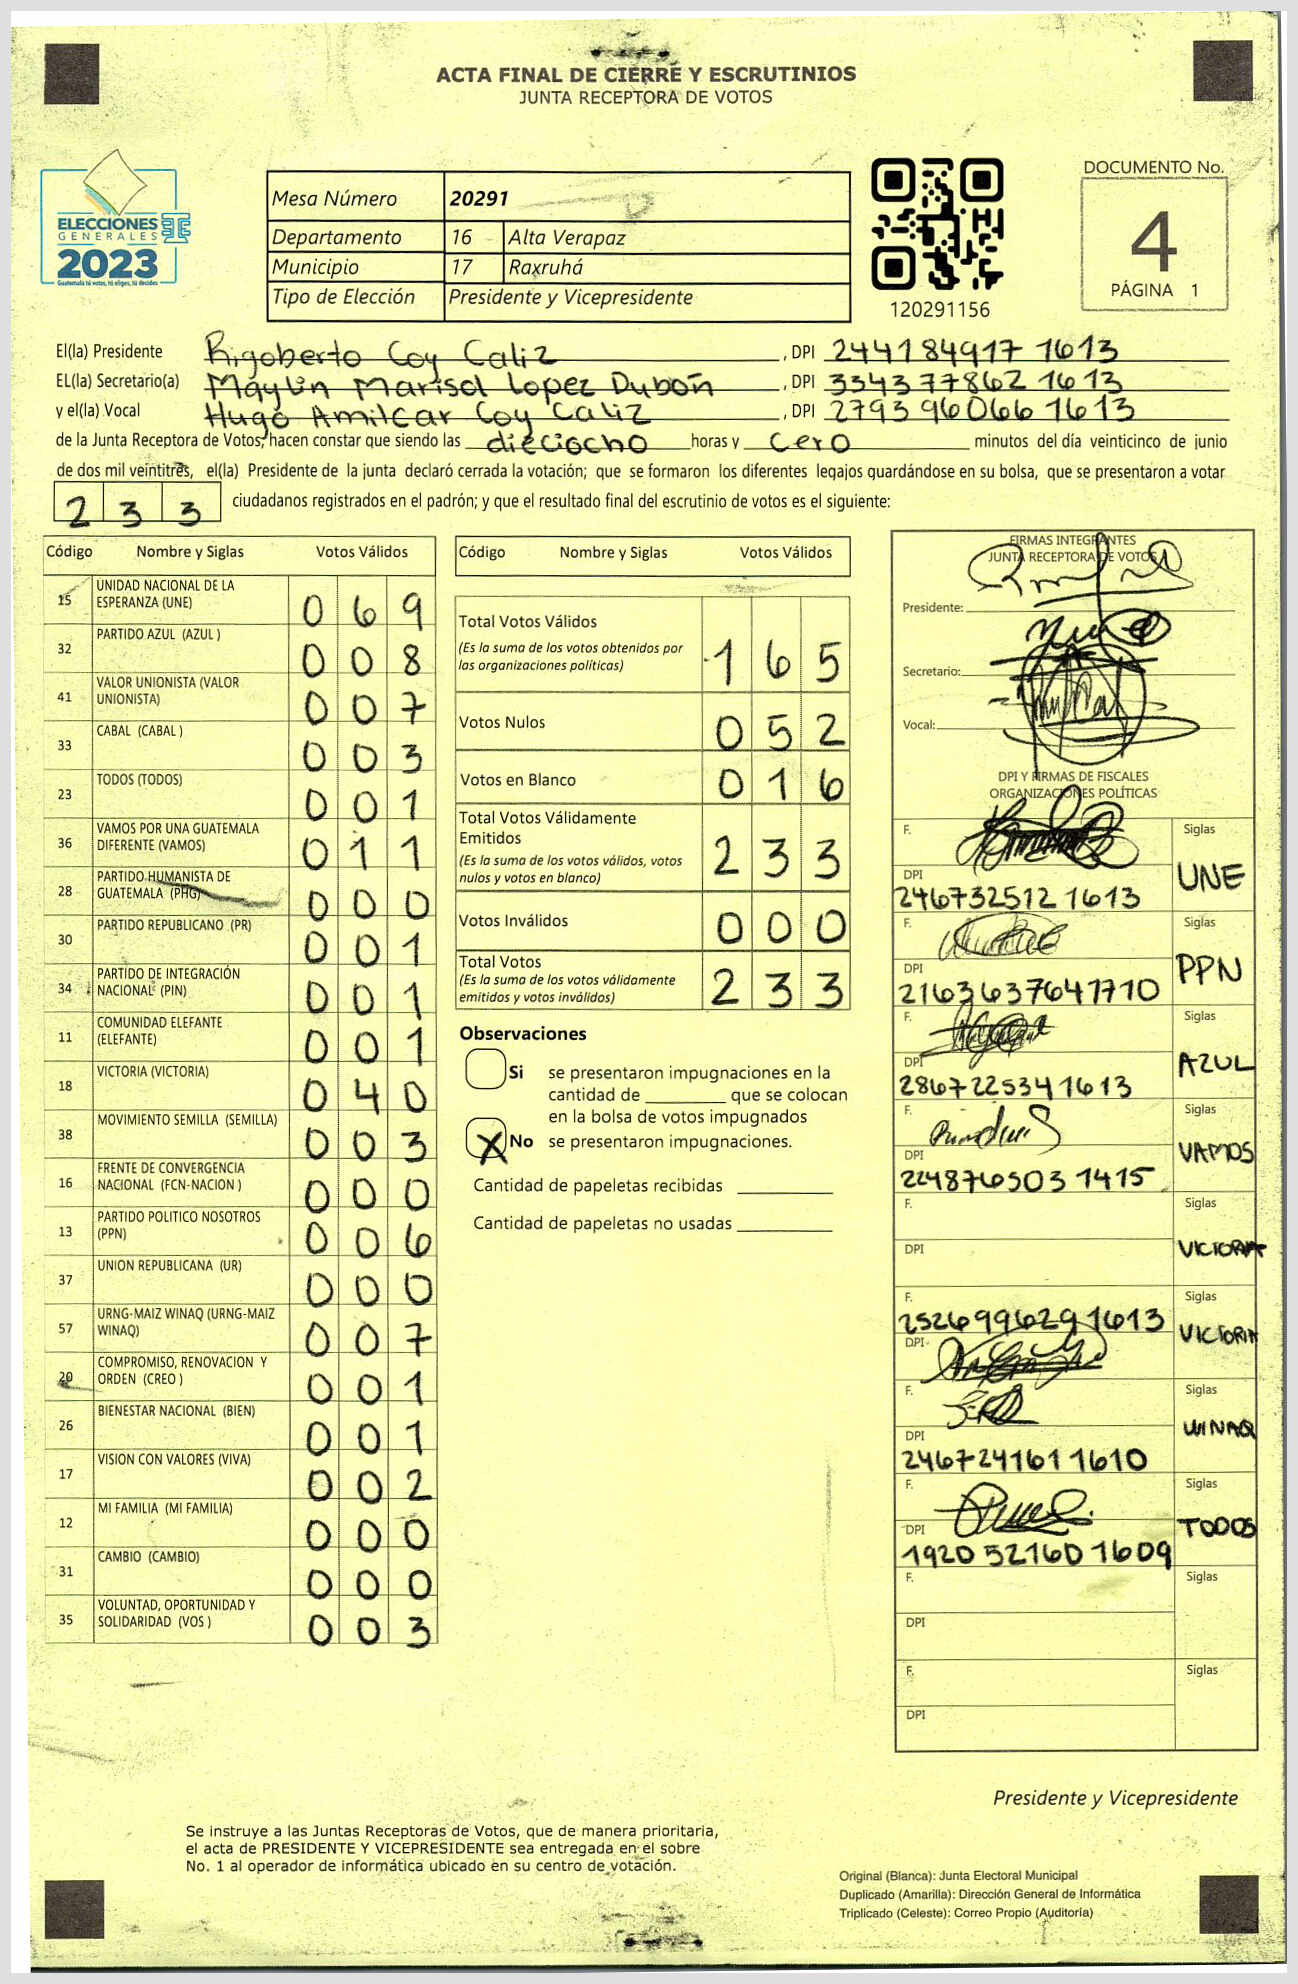 ACTA FINAL DE CIERRE Y ESCRUTINIOS
JUNTA RECEPTORA DE VOTOS
ELECCIONES
GENERALES
2023
Guatemala tú votas, tú eliges, tú decides
Mesa Número 20291
Departamento 16 Alta Verapaz
Municipio 17 Raxruhá
Tipo de Elección Presidente y Vicepresidente
120291156
DOCUMENTO No.
4
PÁGINA 1
El(la) Presidente Rigoberto Coy Caliz , DPI 244184917 1613
EL(la) Secretario(a) Maylin Marisol Lopez Dubon , DPI 334377862 1613
y el(la) Vocal Hugo Amilcar Coy Caliz , DPI 279396066 1613
de la Junta Receptora de Votos, hacen constar que siendo las dieciocho horas y cero minutos del día veinticinco de junio
de dos mil veintitrés, el(la) Presidente de la junta declaró cerrada la votación; que se formaron los diferentes legajos guardándose en su bolsa, que se presentaron a votar
2 3 3 ciudadanos registrados en el padrón; y que el resultado final del escrutinio de votos es el siguiente:
Código Nombre y Siglas Votos Válidos
15 UNIDAD NACIONAL DE LA ESPERANZA (UNE) 0 6 9
32 PARTIDO AZUL (AZUL ) 0 0 8
41 VALOR UNIONISTA (VALOR UNIONISTA) 0 0 7
33 CABAL (CABAL ) 0 0 3
23 TODOS (TODOS) 0 0 1
36 VAMOS POR UNA GUATEMALA DIFERENTE (VAMOS) 0 1 1
28 PARTIDO HUMANISTA DE GUATEMALA (PHG) 0 0 0
30 PARTIDO REPUBLICANO (PR) 0 0 1
34 PARTIDO DE INTEGRACIÓN NACIONAL (PIN) 0 0 1
11 COMUNIDAD ELEFANTE (ELEFANTE) 0 0 1
18 VICTORIA (VICTORIA) 0 4 0
38 MOVIMIENTO SEMILLA (SEMILLA) 0 0 3
16 FRENTE DE CONVERGENCIA NACIONAL (FCN-NACION ) 0 0 0
13 PARTIDO POLITICO NOSOTROS (PPN) 0 0 6
37 UNION REPUBLICANA (UR) 0 0 0
57 URNG-MAIZ WINAQ (URNG-MAIZ WINAQ) 0 0 7
20 COMPROMISO, RENOVACION Y ORDEN (CREO ) 0 0 1
26 BIENESTAR NACIONAL (BIEN) 0 0 1
17 VISION CON VALORES (VIVA) 0 0 2
12 MI FAMILIA (MI FAMILIA) 0 0 0
31 CAMBIO (CAMBIO) 0 0 0
35 VOLUNTAD, OPORTUNIDAD Y SOLIDARIDAD (VOS ) 0 0 3
Código Nombre y Siglas Votos Válidos
Total Votos Válidos
(Es la suma de los votos obtenidos por las organizaciones políticas) 1 6 5
Votos Nulos 0 5 2
Votos en Blanco 0 1 6
Total Votos Válidamente Emitidos
(Es la suma de los votos válidos, votos nulos y votos en blanco) 2 3 3
Votos Inválidos 0 0 0
Total Votos
(Es la suma de los votos válidamente emitidos y votos inválidos) 2 3 3
Observaciones
Si se presentaron impugnaciones en la
cantidad de ________ que se colocan
en la bolsa de votos impugnados
X No se presentaron impugnaciones.
Cantidad de papeletas recibidas
Cantidad de papeletas no usadas
FIRMAS INTEGRANTES
JUNTA RECEPTORA DE VOTOS
Presidente:
Secretario:
Vocal:
DPI Y FIRMAS DE FISCALES
ORGANIZACIONES POLÍTICAS
F. Siglas
DPI UNE
246732512 1613
F. Siglas
DPI PPN
2163637641710
F. Siglas
DPI AZUL
286722534 1613
F. Siglas
DPI VAMOS
224876503 1415
F. Siglas
DPI VICTORIA
F. Siglas
252699629 1613
DPI VICTORIA
F. Siglas
DPI WINAQ
246724161 1610
F. Siglas
DPI TODOS
1920 52160 1609
F. Siglas
DPI
F. Siglas
DPI
Presidente y Vicepresidente
Se instruye a las Juntas Receptoras de Votos, que de manera prioritaria,
el acta de PRESIDENTE Y VICEPRESIDENTE sea entregada en el sobre
No. 1 al operador de informática ubicado en su centro de votación.
Original (Blanca): Junta Electoral Municipal
Duplicado (Amarilla): Dirección General de Informática
Triplicado (Celeste): Correo Propio (Auditoría)